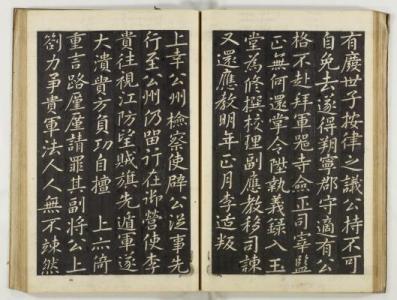 有廢世子按律之議公持不可
自免去遂得翔寧郡守適有公
格不赴拜軍器寺僉正司宰監
正無何還掌令陞執義錄入玉
堂爲修撰校理副應敎移司諫
又還應敎明年正月李适叛
上幸公州檢察使辟公從事先
行至公州仍留在御營使李
貴往視江防望賊旗先遁軍遂
大潰貴方負功自擅 上亦倚
重言路厪厪請罪其副將公上
箚力爭貴軍法人人無不竦然